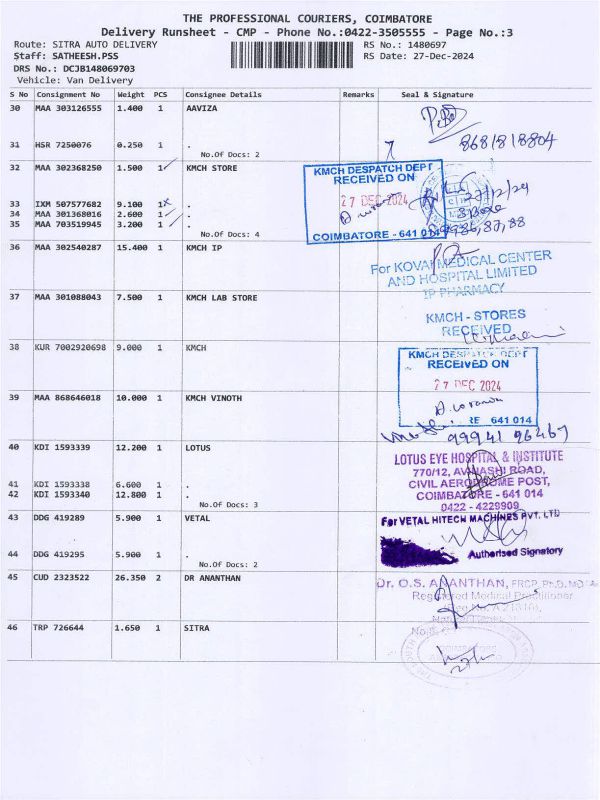 THE PROFESSIONAL COURIERS, COIMBATORE
Delivery Runsheet - CMP - Phone No.:0422-3505555 - Page No.:3
Route: SITRA AUTO DELIVERY RS No.: 1480697
Staff: SATHEESH.PSS RS Date: 27-Dec-2024
DRS No.: DCJB148069703
Vehicle: Van Delivery
S No Consignment No Weight PCS Consignee Details Remarks Seal & Signature
30 MAA 303126555 1.400 1 AAVIZA
31 HSR 7250076 0.250 1 . 8681818804
No.Of Docs: 2
32 MAA 302368250 1.500 1 KMCH STORE
KMCH DESPATCH DEPT
RECEIVED ON
27 DEC 2024
COIMBATORE - 641 014
27/12/24
33 IXM 507577682 9.100 1 .
34 MAA 301368016 2.600 1 .
35 MAA 703519945 3.200 1 .
No.Of Docs: 4
36 MAA 302540287 15.400 1 KMCH IP
For KOVAI MEDICAL CENTER
AND HOSPITAL LIMITED
IP PHARMACY
37 MAA 301088043 7.500 1 KMCH LAB STORE
KMCH - STORES
RECEIVED
38 KUR 7002920698 9.000 1 KMCH
KMCH DESPATCH DEPT
RECEIVED ON
27 DEC 2024
39 MAA 868646018 10.000 1 KMCH VINOTH
RE 641 014
99941 96467
40 KDI 1593339 12.200 1 LOTUS
LOTUS EYE HOSPITAL & INSTITUTE
770/12, AVINASHI ROAD,
CIVIL AERODROME POST,
COIMBATORE - 641 014
0422 - 4229909
41 KDI 1593338 6.600 1 .
42 KDI 1593340 12.800 1 .
No.Of Docs: 3
43 DDG 419289 5.900 1 VETAL
For VETAL HITECH MACHINES PVT. LTD
Authorised Signatory
44 DDG 419295 5.900 1 .
No.Of Docs: 2
45 CUD 2323522 26.350 2 DR ANANTHAN
Dr. O.S. ANANTHAN, FRCP, Ph.D,
Registered Medical Practitioner
46 TRP 726644 1.650 1 SITRA